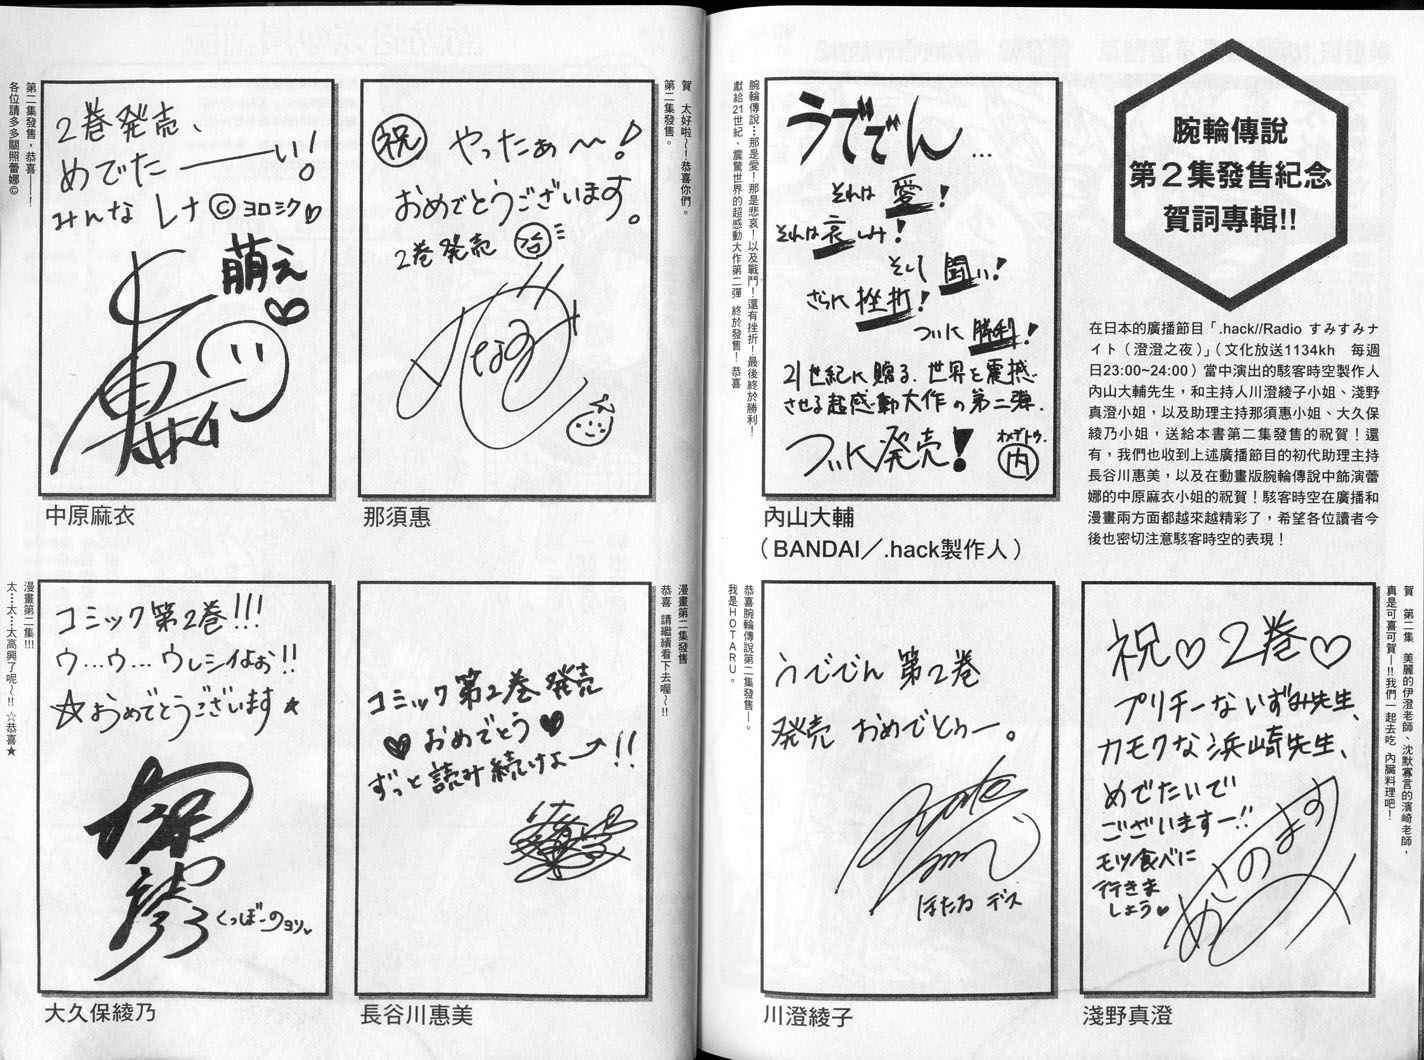 腕輪傳說
第2集發售紀念
賀詞專輯!!
在日本的廣播節目「.hack//Radio すみすみナ
イト（澄澄之夜）」（文化放送1134kh　每週
日23:00~24:00）當中演出的駭客時空製作人
內山大輔先生，和主持人川澄綾子小姐、淺野
真澄小姐，以及助理主持那須惠小姐、大久保
綾乃小姐，送給本書第二集發售的祝賀！還
有，我們也收到上述廣播節目的初代助理主持
長谷川惠美，以及在動畫版腕輪傳說中飾演蕾
娜的中原麻衣小姐的祝賀！駭客時空在廣播和
漫畫兩方面都越來越精彩了，希望各位讀者今
後也密切注意駭客時空的表現！
うででん…
それは愛！
それは哀しみ！
そして闘い！
さらに挫折！
ついに勝利！
21世紀に贈る、世界を震撼
させる超感動大作の第二弾、
ついに発売！
オメデトウ、
内
腕輪傳說…那是愛！那是悲哀！以及戰鬥！還有挫折！最後終於勝利！
獻給21世紀、震驚世界的超感動大作第二彈 終於發售！恭喜
內山大輔
（BANDAI／.hack製作人）
祝♡2巻♡
プリチーないずみ先生、
カモクな浜崎先生、
めでたいで
ございますー!!
モツ食べに
行きま
しょう♥
あさのますみ
賀　第二集　美麗的伊澄老師、沈默寡言的濱崎老師，
真是可喜可賀—!!我們一起去吃 內臟料理吧！
淺野真澄
うででん第2巻
発売おめでとぅー。
ほたる デス
恭喜腕輪傳說第二集發售—。
我是HOTARU。
川澄綾子
祝 やったぁ〜！
おめでとうございます。
2巻発売
なす
賀　太好啦～！恭喜你們。
第二集發售。
那須惠
2巻発売、
めでたーーい！
みんなレナ©ヨロシク♡
萌え
♥
第二集發售，恭喜——！
各位請多多關照蕾娜©
中原麻衣
コミック第2巻発売
♥おめでとう♥
ずっと読み続けよー!!
漫畫第二集發售
恭喜 請繼續看下去喔～!!
長谷川惠美
コミック第2巻!!!
ウ…ウ…ウレシイよぉ!!
☆おめでとうございます★
くっぼーのヨリ
漫畫第二集!!!
太…太…太高興了呢～!! ☆恭喜★
大久保綾乃